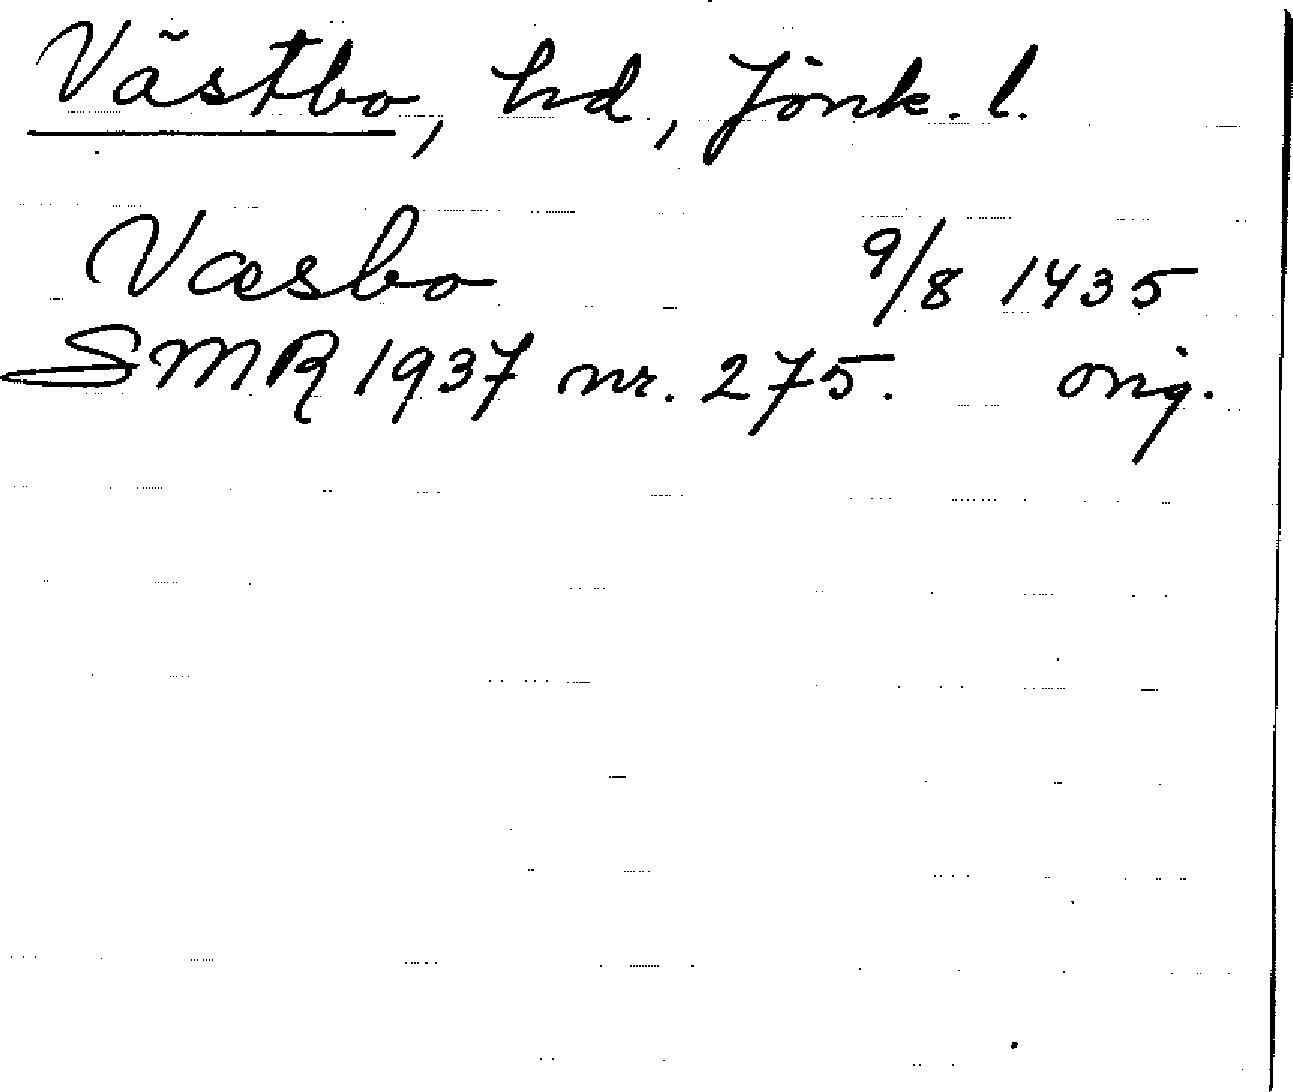 Västbo, hd, Jönk. l.
Væsbo 9/8 1435
SMR 1937 nr. 275. orig.